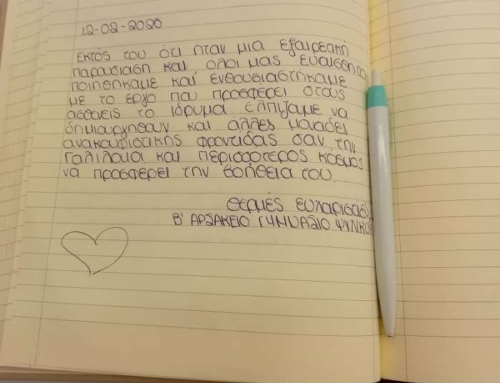 12-02-2020
Εκτός του ότι ήταν μια εξαιρετική
παρουσίαση και όλοι μας ευαισθητο
ποιηθήκαμε και ενθουσιαστήκαμε
με το έργο που προσφέρει στους
ασθενείς το ίδρυμα ελπίζουμε να
δημιουργηθούν και άλλες μονάδες
ανακουφιστικής φροντίδας σαν την
Γαλιλαία και περισσότερος κόσμος
να προσφέρει την βοήθεια του.
Θερμές ευχαριστίες
Β' ΑΡΣΑΚΕΙΟ ΓΥΜΝΑΣΙΟ ΨΥΧΙΚΟΥ